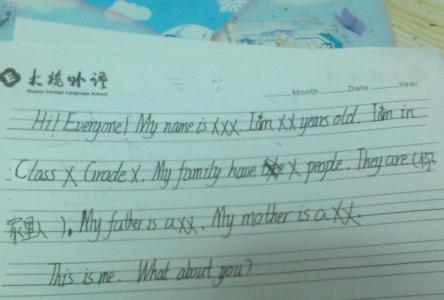 大桥外语
Month Date Year
Hi! Everyone! My name is XXX. I am XX years old. I am in
Class X Grade X. My family have X people. They are (你
家里人). My father is a XX. My mother is a XX.
This is me. What about you?